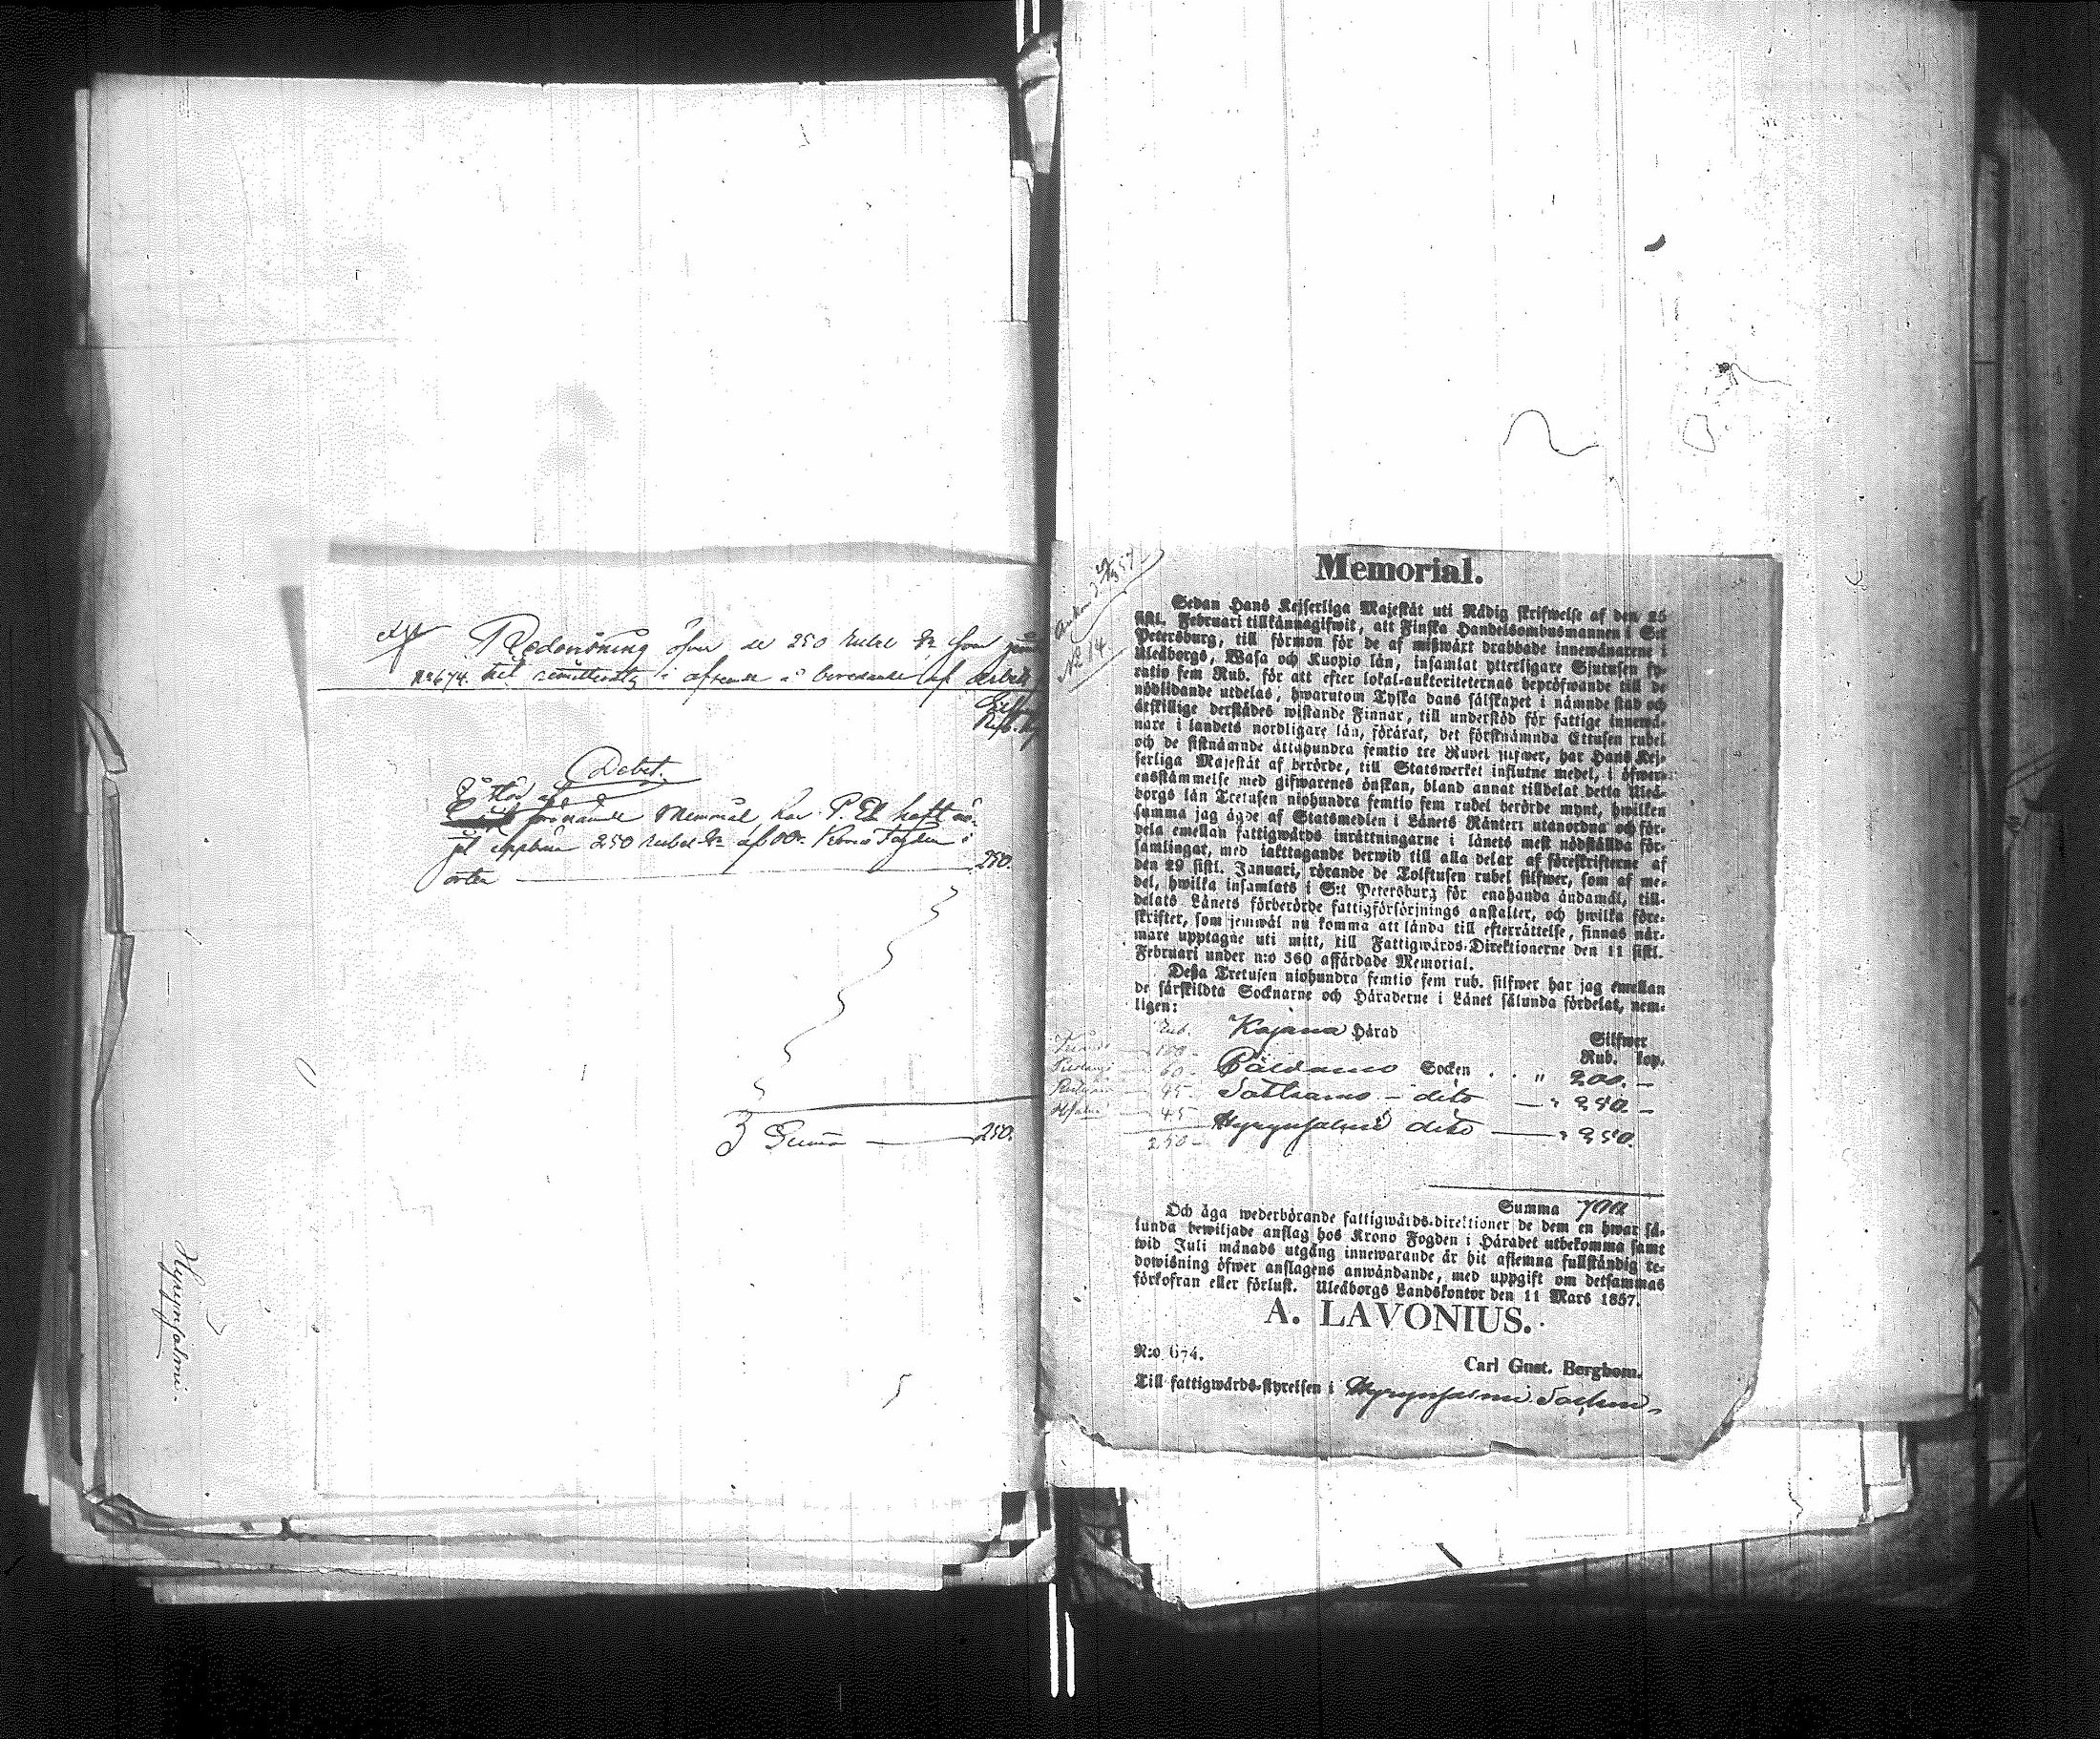 Redovisning öfver de 250 rubel Sr som
N:o 674.
Debet.
På stöd af
Memorial har P. Ebl haft
250 rubel Sr af Krono Fogden i
orten 250.
Summa 250.
Hyrynsalmi.
N:o 14.
Memorial.
Sedan Hans Kejserliga Majestät uti Nådig skrifwelse af den 25
sistl. Februari tillkännagifwit, att Finska Handelsombudsmannen i S:t
Petersburg, till förmon för de af mißwärt drabbade innewånarene i
Uleåborgs, Wasa och Kuopio län, insamlat ytterligare Sjutusen fy-
ratio fem Rub. för att efter lokal-auktoriteternas bepröfwande till de
nödlidande utdelas, hwarutom Tyska dans sälskapet i nämnde stad och
åtskillige derstädes wistande Finnar, till understöd för fattige innewå-
nare i landets nordligare län, förärat, det förstnämnda Ettusen rubel
och de sistnämnde åttahundra femtio tre Rubel silfwer, har Hans Kej-
serliga Majestät af berörde, till Statswerket influtne medel, i öfwer-
ensstämmelse med gifwarenes önskan, bland annat tilldelat detta Uleå-
borgs län Tretusen niohundra femtio fem rubel berörde mynt, hwilken
summa jag ägde af Statsmedlen i Länets Ränteri utanordna och för-
dela emellan fattigwårds inrättningarne i länets mest nödställda för-
samlingar, med iakttagande derwid till alla delar af föreskrifterne af
den 29 sistl. Januari, rörande de Tolftusen rubel silfwer, som af me-
del, hwilka insamlats i S:t Petersburg för enahanda ändamål, till-
delats Länets förberörde fattigförsörjnings anstalter, och hwilka före-
skrifter, som jemwäl nu komma att lända till efterrättelse, finnas när-
mare upptagne uti mitt, till Fattigwårds-Direktionerne den 11 sistl.
Februari under n:o 360 affärdade Memorial.
Deßa Tretusen niohundra femtio fem rub. silfwer har jag emellan
de särskildta Socknarne och Häraderne i Länet sålunda fördelat, nem-
ligen:
Rub. Kajana Härad Silfwer
100 - Rub. kop.
60 - Päldamo Socken . . " 200. -
45 - Sotkamo - dito - " 250 -
45 Hyrynsalmi dito - " 250.
250 -
Summa 700
Och äga wederbörande fattigwårds-direktioner de dem en hwar så-
lunda bewiljade anslag hos Krono Fogden i Häradet utbekomma samt
wid Juli månads utgång innewarande år hit aflemna fullständig re-
dowisning öfwer anslagens anwändande, med uppgift om detsammas
förkofran eller förlust. Uleåborgs Landskontor den 11 Mars 1857.
A. LAVONIUS.
Carl Gust. Bergbom.
N:o 674.
Till fattigwårds-styrelsen i Hyrynsalmi Socken.